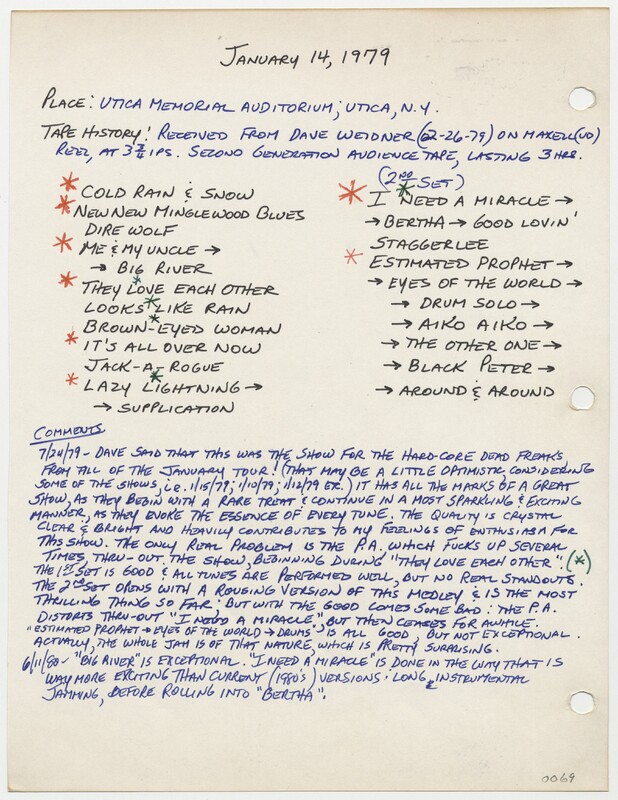 January 14, 1979
Place: Utica Memorial Auditorium; Utica, N.Y.
Tape History: Received from Dave Weidner (02-26-79) on Maxell (UD)
Reel, at 3 3/4 ips. Second generation audience tape, lasting 3 hrs.
* Cold Rain & Snow
* New New Minglewood Blues
Dire Wolf
* Me & My Uncle →
→ Big River
* They Love Each Other
Looks * Like Rain
Brown-Eyed Woman
* It's All Over Now
Jack-A-Rogue
* Lazy Lightning →
→ Supplication
(2nd Set)
* I Need a Miracle →
→ Bertha → Good Lovin'
Staggerlee
* Estimated Prophet →
→ Eyes of the World →
→ Drum Solo →
→ Aiko Aiko →
→ The Other One →
→ Black Peter →
→ Around & Around
Comments
7/24/79 - Dave said that this was the show for the hard-core Dead freaks
from all of the January tour! (That may be a little optimistic, considering
some of the shows, i.e. 1/15/79; 1/10/79; 1/12/79 etc.) It has all the marks of a great
show, as they begin with a rare treat & continue in a most sparkling & exciting
manner, as they evoke the essence of every tune. The quality is crystal
clear & bright and heavily contributes to my feelings of enthusiasm for
this show. The only real problem is the P.A. which fucks up several
times, thru-out the show, beginning during "They Love Each Other". (*)
The 1st set is good & all tunes are performed well, but no real standouts.
The 2nd set opens with a rousing version of this medley & is the most
thrilling thing so far. But with the good comes some bad: the P.A.
distorts thru-out "I Need a Miracle", but then ceases for awhile.
"Estimated Prophet → Eyes of the World → Drums" is all good, but not exceptional.
Actually, the whole jam is of that nature, which is pretty surprising.
6/11/80 - "Big River" is exceptional. "I Need a Miracle" is done in the way that is
way more exciting than current (1980's) versions: long & instrumental
jamming, before rolling into "Bertha".
0069